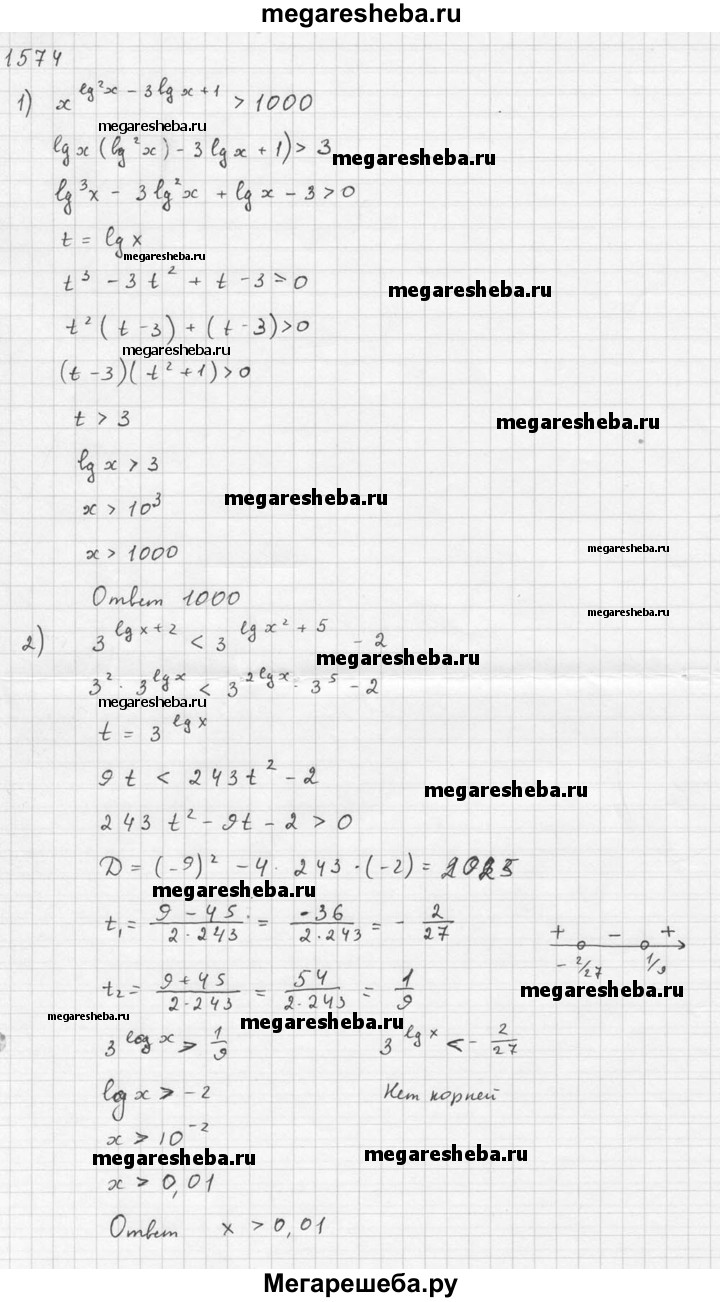 megaresheba.ru
1574
1) x^{lg²x - 3lg x + 1} > 1000
megaresheba.ru
lg x (lg²x) - 3 lg x + 1) > 3
megaresheba.ru
lg³x - 3 lg²x + lg x - 3 > 0
t = lg x
megaresheba.ru
t³ - 3t² + t - 3 > 0
megaresheba.ru
t²(t - 3) + (t - 3) > 0
megaresheba.ru
(t - 3)(t² + 1) > 0
t > 3
megaresheba.ru
lg x > 3
x > 10³
megaresheba.ru
x > 1000
megaresheba.ru
Ответ 1000
megaresheba.ru
2) 3^{lg x + 2} < 3^{lg x² + 5} - 2
megaresheba.ru
3² · 3^{lg x} < 3^{2 lg x} · 3⁵ - 2
megaresheba.ru
t = 3^{lg x}
9t < 243t² - 2
megaresheba.ru
243 t² - 9t - 2 > 0
D = (-9)² - 4 · 243 · (-2) = 2025
megaresheba.ru
t₁ = (9 - 45)/(2 · 243) = (-36)/(2 · 243) = - 2/27
+ - +
- 2/27 1/9
t₂ = (9 + 45)/(2 · 243) = 54/(2 · 243) = 1/9
megaresheba.ru
megaresheba.ru
megaresheba.ru
3^{log x} > 1/9 3^{lg x} < - 2/27
log x > -2 Нет корней
x > 10⁻²
megaresheba.ru
megaresheba.ru
x > 0,01
Ответ x > 0,01
Мегарешеба.ру